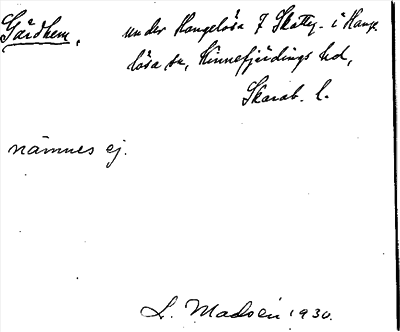 Gårdhem, under Hangelösa 7 Skatteg. i Hange-
lösa sn, Kinnefjärdings hd,
Skarab. l.
nämnes ej.
L. Madsén 1930.